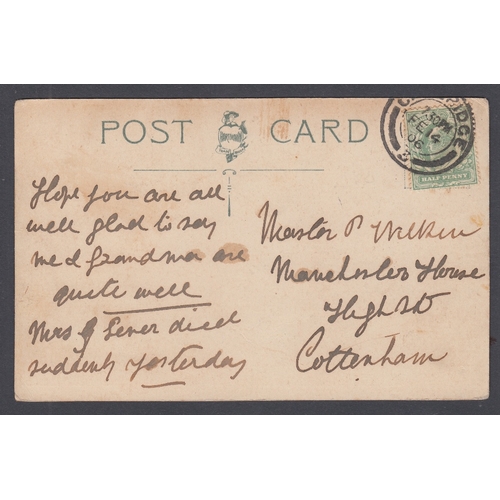 POST CARD
CAMBRIDGE
7.30 PM
FE 14
HALF PENNY
Hope you are all
well glad to say
me & Grandma are
quite well
Mrs G Lever died
suddenly yesterday
Master P Wilkin
Manchester House
High St
Cottenham